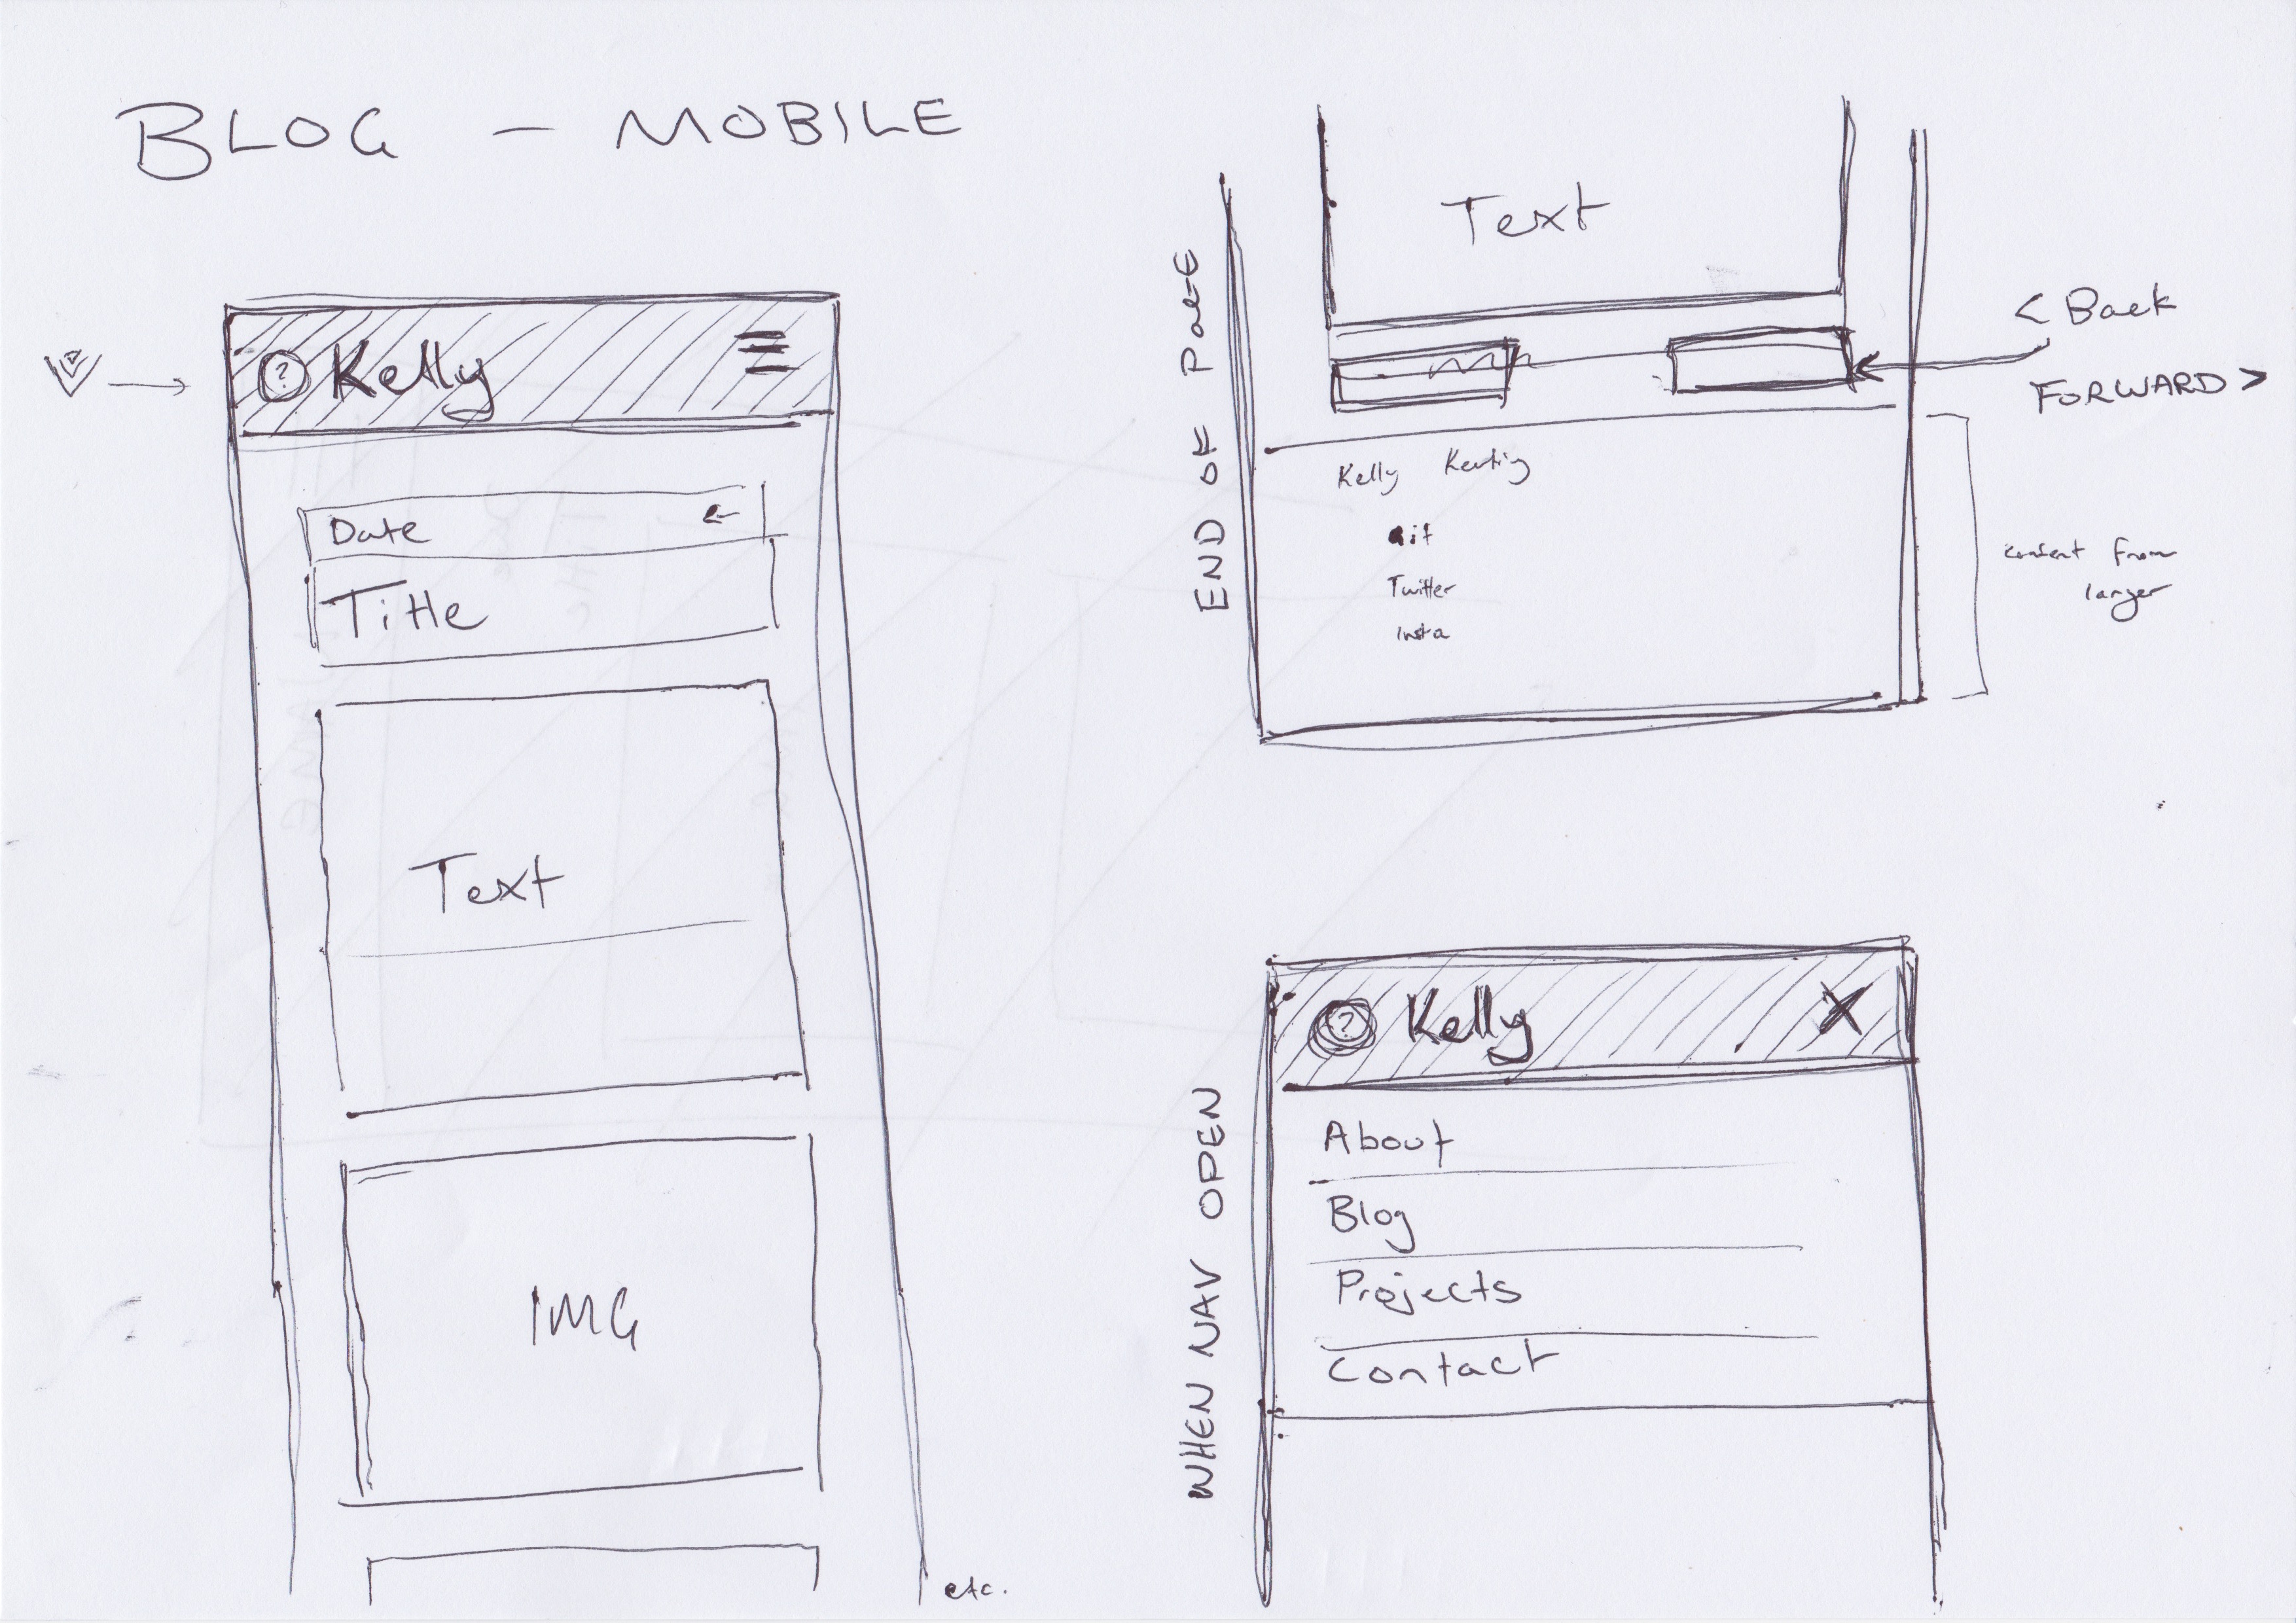 BLOG - MOBILE
? Kelly
Date ←
Title
Text
IMG
etc.
END OF PAGE
Text
< Back
FORWARD >
Kelly
Git
Twitter
Insta
content from
larger
WHEN NAV OPEN
? Kelly X
About
Blog
Projects
Contact